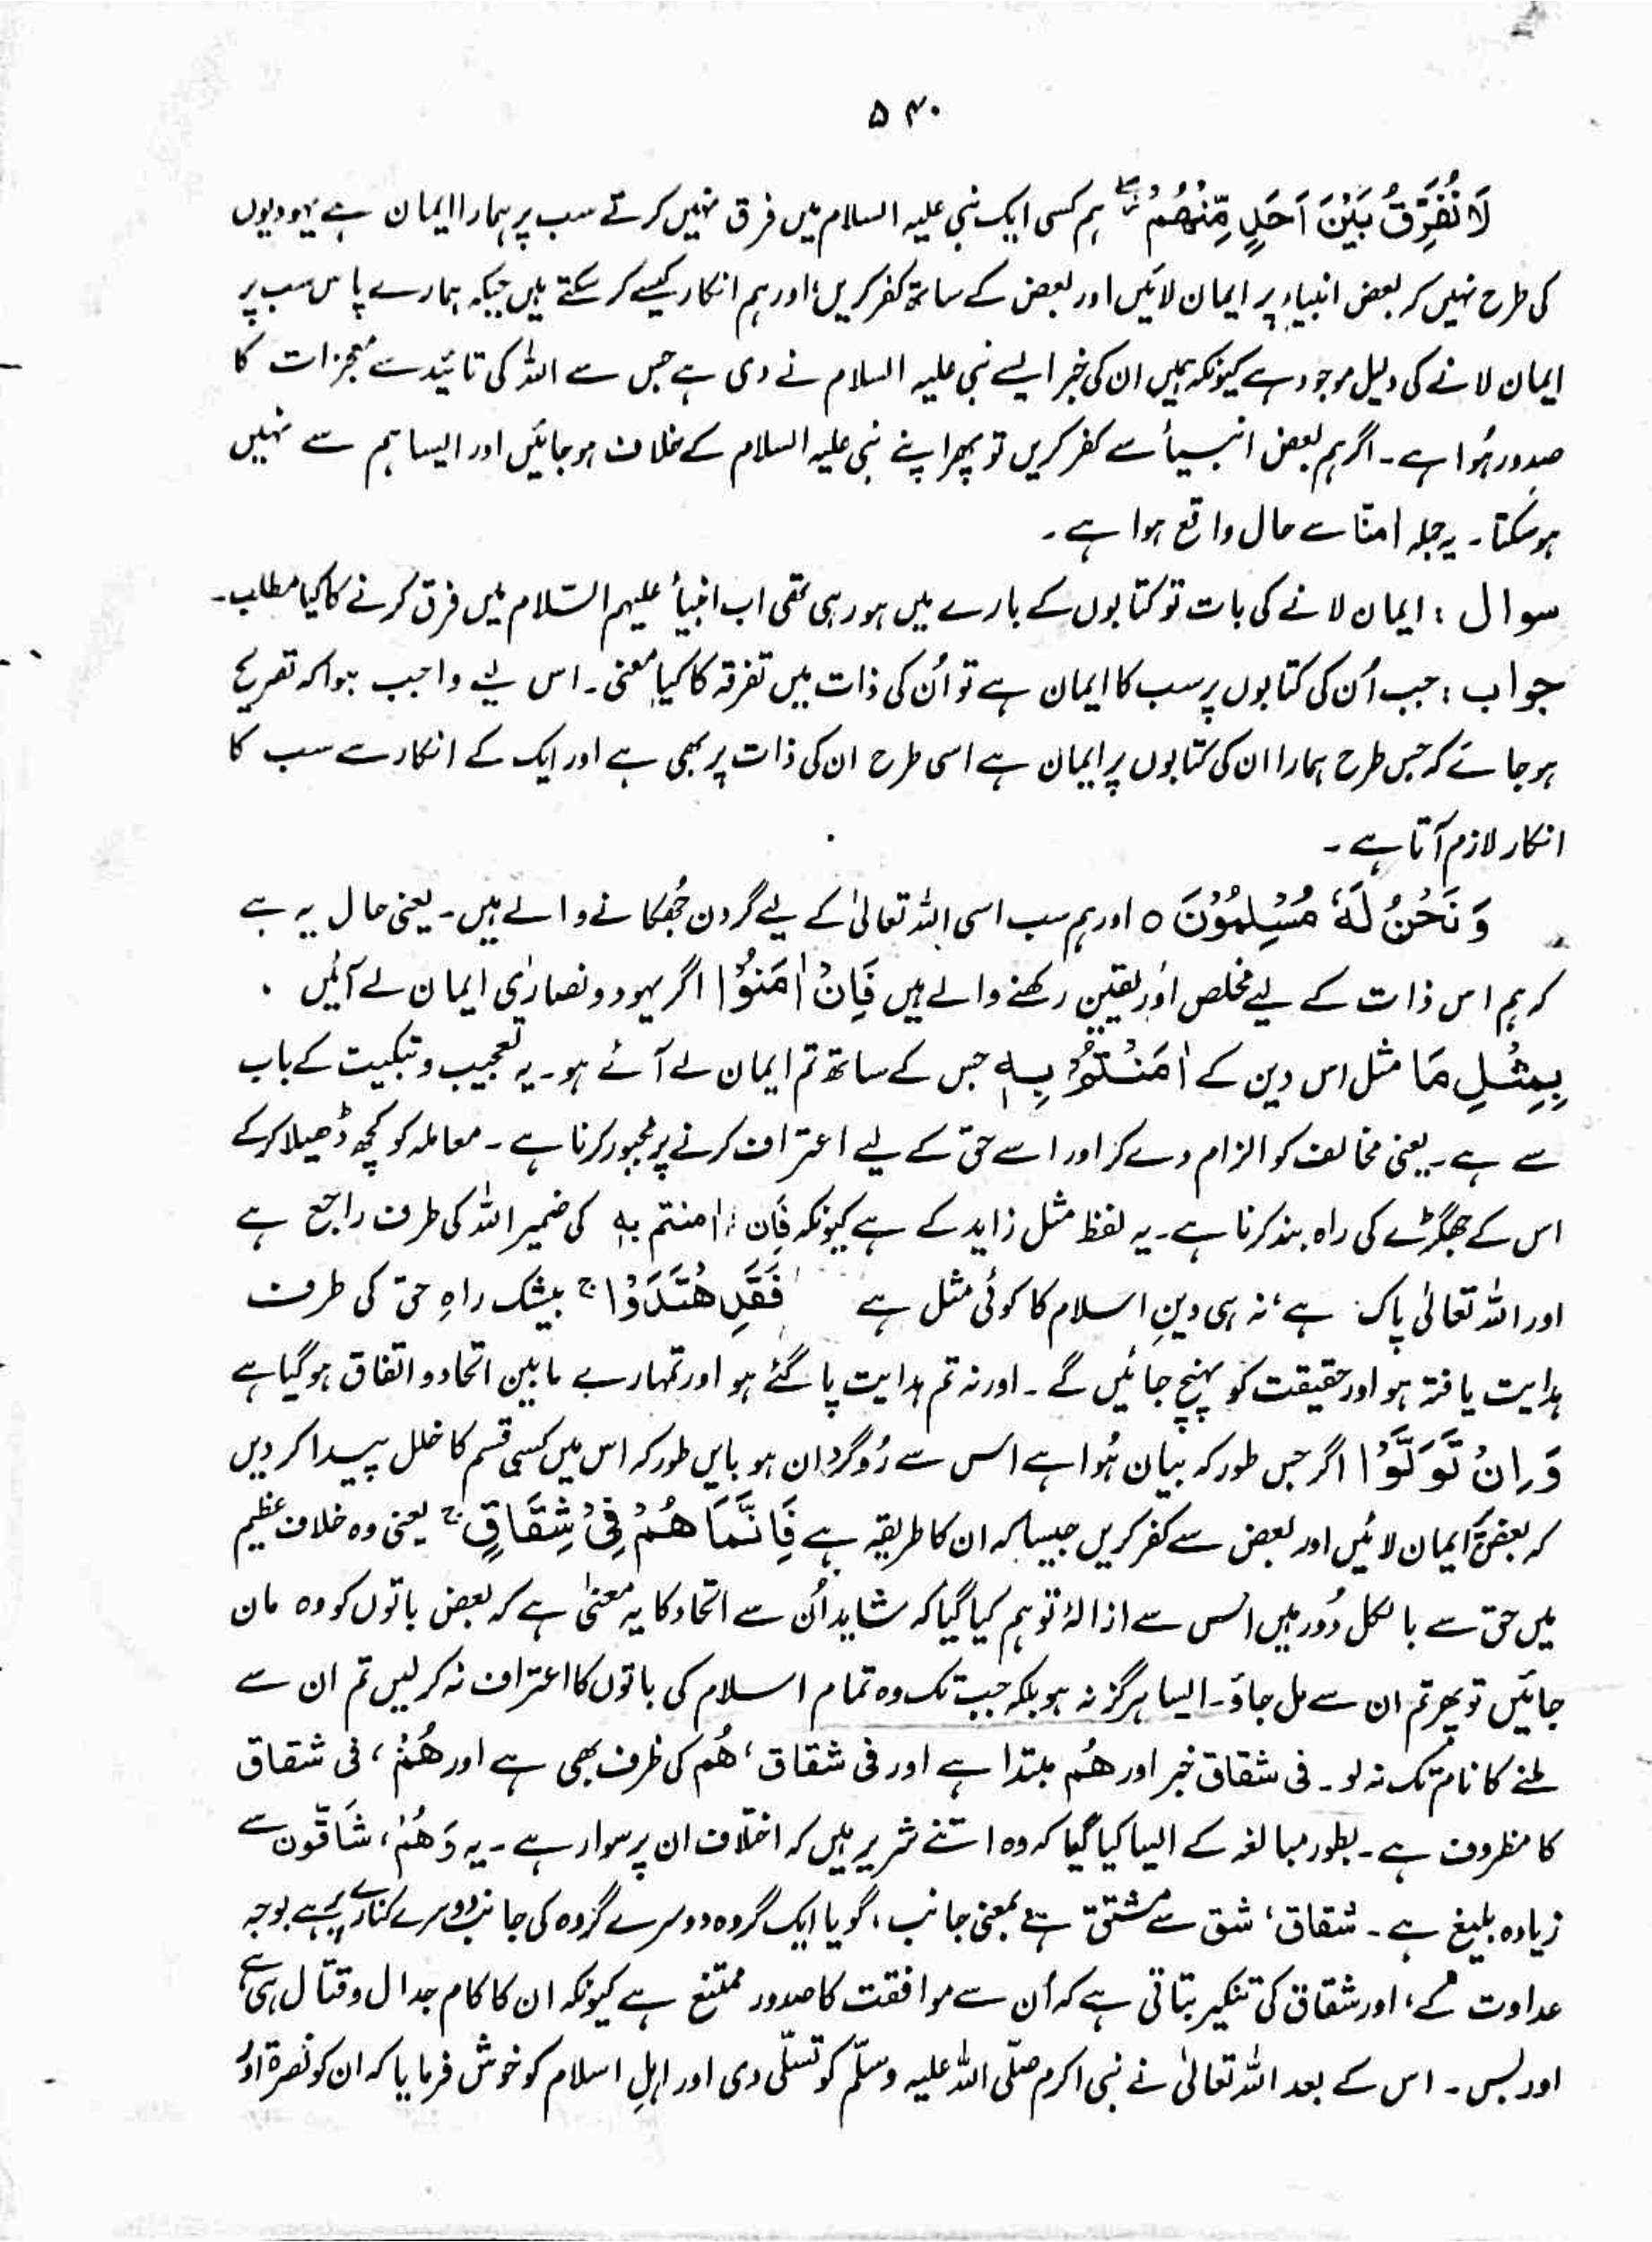 ۵۴۰
لَا نُفَرِّقُ بَيْنَ اَحَدٍ مِّنْهُمْ ہم کسی ایک نبی علیہ السلام میں فرق نہیں کرتے سب پر ہمارا ایمان ہے یہودیوں
کی طرح نہیں کہ بعض انبیاء پر ایمان لائیں اور بعض کے ساتھ کفر کریں، اور ہم انکار کیسے کر سکتے ہیں جبکہ ہمارے پاس سب پر
ایمان لانے کی دلیل موجود ہے کیونکہ ہمیں ان کی خبر ایسے نبی علیہ السلام نے دی ہے جس سے اللہ کی تائید سے معجزات کا
صدور ہُوا ہے۔ اگر ہم بعض انبیأ سے کفر کریں تو پھر اپنے نبی علیہ السلام کے خلاف ہو جائیں اور ایسا ہم سے نہیں
ہو سکتا۔ یہ جملہ امنّا سے حال واقع ہوا ہے۔
سوال : ایمان لانے کی بات تو کتابوں کے بارے میں ہو رہی تھی اب انبیأ علیہم السّلام میں فرق کرنے کا کیا مطلب۔
جواب : جب اُن کی کتابوں پر سب کا ایمان ہے تو اُن کی ذات میں تفرقہ کا کیا معنی۔ اس لیے واجب ہوا کہ تصریح
ہو جائے کہ جس طرح ہمارا ان کی کتابوں پر ایمان ہے اسی طرح ان کی ذات پر بھی ہے اور ایک کے انکار سے سب کا
انکار لازم آتا ہے۔
وَ نَحْنُ لَهٗ مُسْلِمُوْنَ ○ اور ہم سب اسی اللہ تعالیٰ کے لیے گردن جُھکانے والے ہیں۔ یعنی حال یہ ہے
کہ ہم اس ذات کے لیے مخلص اور یقین رکھنے والے ہیں فَاِنْ اٰمَنُوْا اگر یہود و نصاریٰ ایمان لے آئیں ۔
بِمِثْلِ مَا مثل اس دین کے اٰمَنْتُمْ بِهٖ جس کے ساتھ تم ایمان لے آئے ہو۔ یہ تعجیب و تبکیت کے باب
سے ہے۔ یعنی مخالف کو الزام دے کر اور اسے حق کے لیے اعتراف کرنے پر مجبور کرنا ہے۔ معاملہ کو کچھ ڈھیلا کرکے
اس کے جھگڑے کی راہ بند کرنا ہے۔ یہ لفظ مثل زاید کے ہے کیونکہ فَاِن اٰمنتم بهٖ کی ضمیر اللہ کی طرف راجع ہے
اور اللہ تعالیٰ پاک ہے، نہ ہی دینِ اسلام کا کوئی مثل ہے فَقَدِ هْتَدَوْا ج بیشک راہِ حق کی طرف
ہدایت یافتہ ہو اور حقیقت کو پہنچ جائیں گے۔ اور نہ تم ہدایت پا گئے ہو اور تمہارے مابین اتحاد و اتفاق ہو گیا ہے
وَ اِنْ تَوَلَّوْا اگر جس طور کہ بیان ہُوا ہے اس سے رُوگردان ہو بایں طور کہ اس میں کسی قسم کا خلل پیدا کر دیں
کہ بعض پر ایمان لائیں اور بعض سے کفر کریں جیسا کہ ان کا طریقہ ہے فَاِنَّمَا هُمْ فِیْ شِقَاقٍ ج یعنی وہ خلاف عظیم
میں حق سے بالکل دُور ہیں اس سے ازالۂ توہم کیا گیا کہ شاید اُن سے اتحاد کا یہ معنیٰ ہے کہ بعض باتوں کو وہ مان
جائیں تو پھر تم ان سے مل جاؤ۔ ایسا ہرگز نہ ہو بلکہ جب تک وہ تمام اسلام کی باتوں کا اعتراف نہ کر لیں تم ان سے
ملنے کا نام تک نہ لو۔ فی شقاق خبر اور هُم مبتدا ہے اور فی شقاق، هُم کی ظرف بھی ہے اور هُمْ، فی شقاق
کا مظروف ہے۔ بطور مبالغہ کے ایسا کیا گیا کہ وہ اتنے شریر ہیں کہ اختلاف ان پر سوار ہے۔ یہ وَهُمْ، شَاقّون سے
زیادہ بلیغ ہے۔ شقاق، شق سے مشتق ہے بمعنی جانب، گویا ایک گروہ دوسرے گروہ کی جانب دوسرے کنارے پر ہے بوجہ
عداوت کے، اور شقاق کی تنکیر بتاتی ہے کہ اُن سے موافقت کا صدور ممتنع ہے کیونکہ ان کا کام جدال و قتال ہی ہے،
اور بس۔ اس کے بعد اللہ تعالیٰ نے نبی اکرم صلّی اللہ علیہ وسلّم کو تسلّی دی اور اہلِ اسلام کو خوش فرمایا کہ ان کو نصرۃ اور